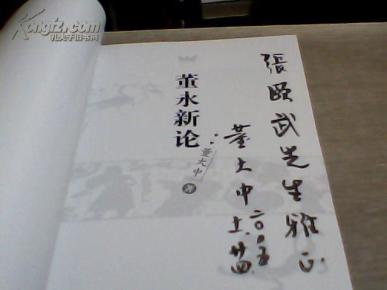 Kongfz.com
孔夫子旧书网
董永新论
董大中 著
張頤武先生雅正
董大中
二〇〇五